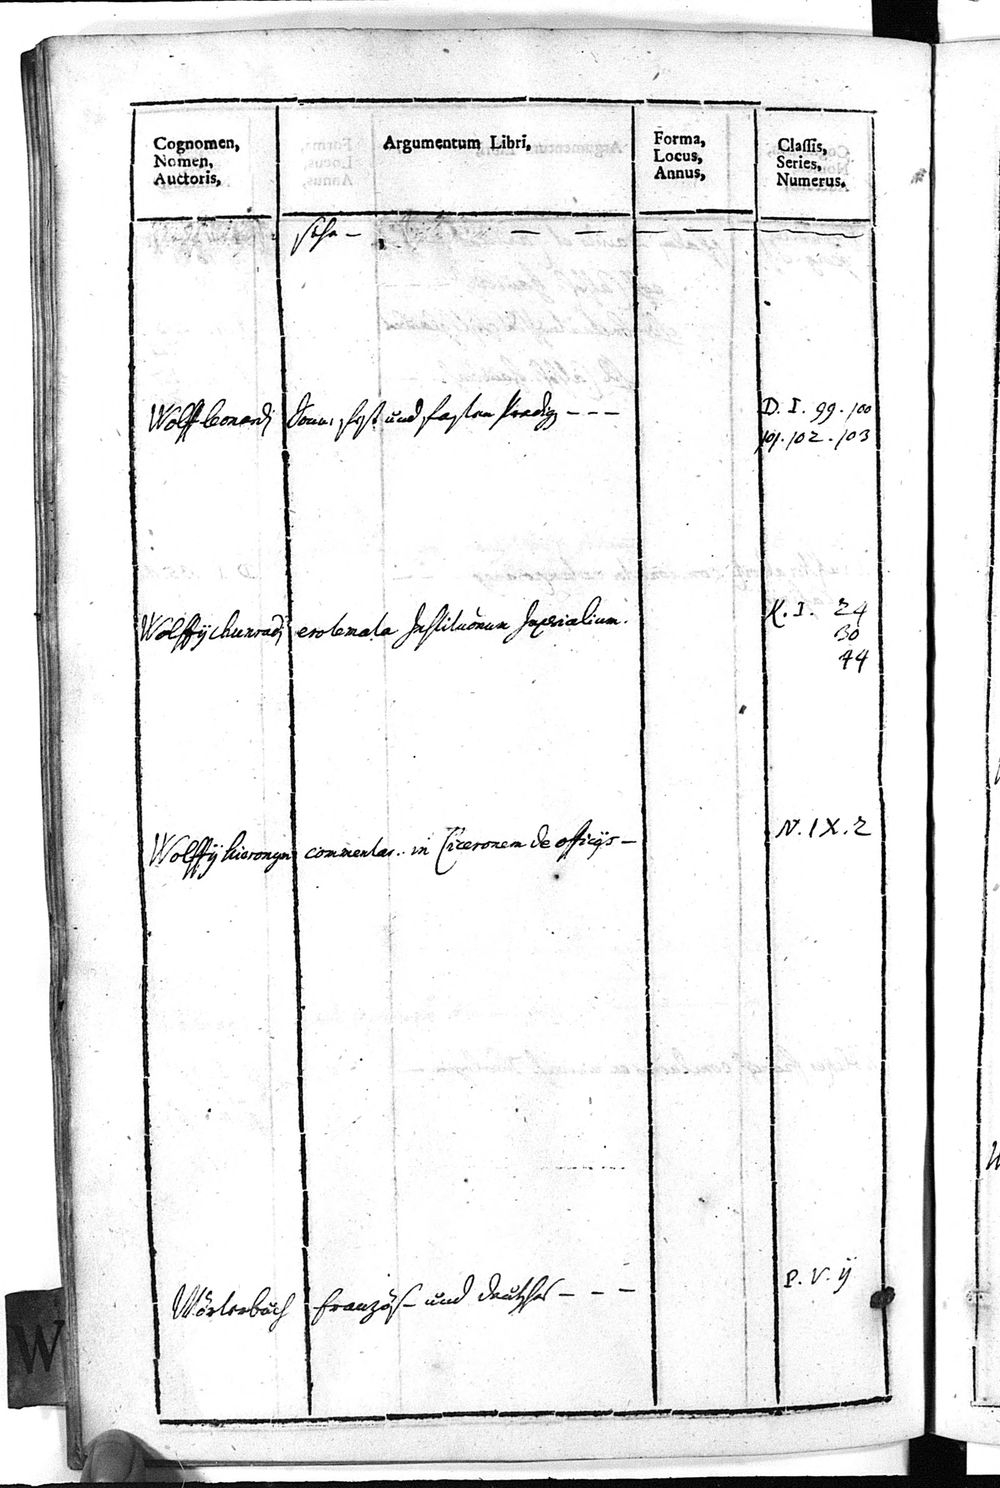 Cognomen,
Nomen,
Auctoris,
Argumentum Libri,
Forma,
Locus,
Annus,
Classis,
Series,
Numerus.
Wolff leonardj Sonn, fest und fasten Predig - - - D. I. 99. 100
101. 102. 103
Wolffÿ chunradj erotemata Institutionum Imperialium. K. I. 24
30
44
Wolffÿ hieronym commentar. in Ciceronem de officÿs - N. IX. 2
Wörterbuch französ- und deutsches - - - P. V. ÿ
W